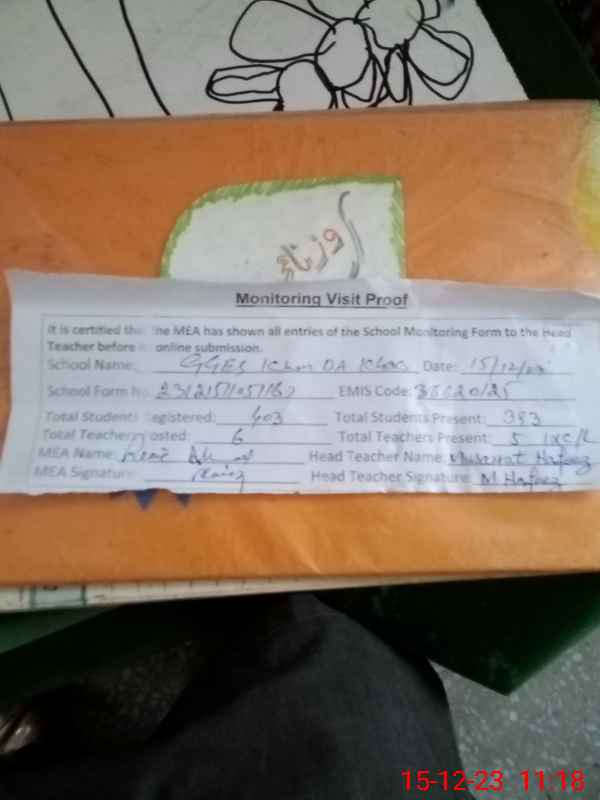 Monitoring Visit Proof
It is certified the MEA has shown all entries of the School Monitoring Form to the Head
Teacher before online submission.
School Name: GGES Date: 15/12/23
School Form No. EMIS Code: 35620125
Total Students Registered: 403 Total Students Present: 383
Total Teachers Posted: 6 Total Teachers Present: 5 1xc/L
MEA Name: Head Teacher Name: Musarrat Hafeez
MEA Signature Head Teacher Signature: M. Hafeez
15-12-23 11:18